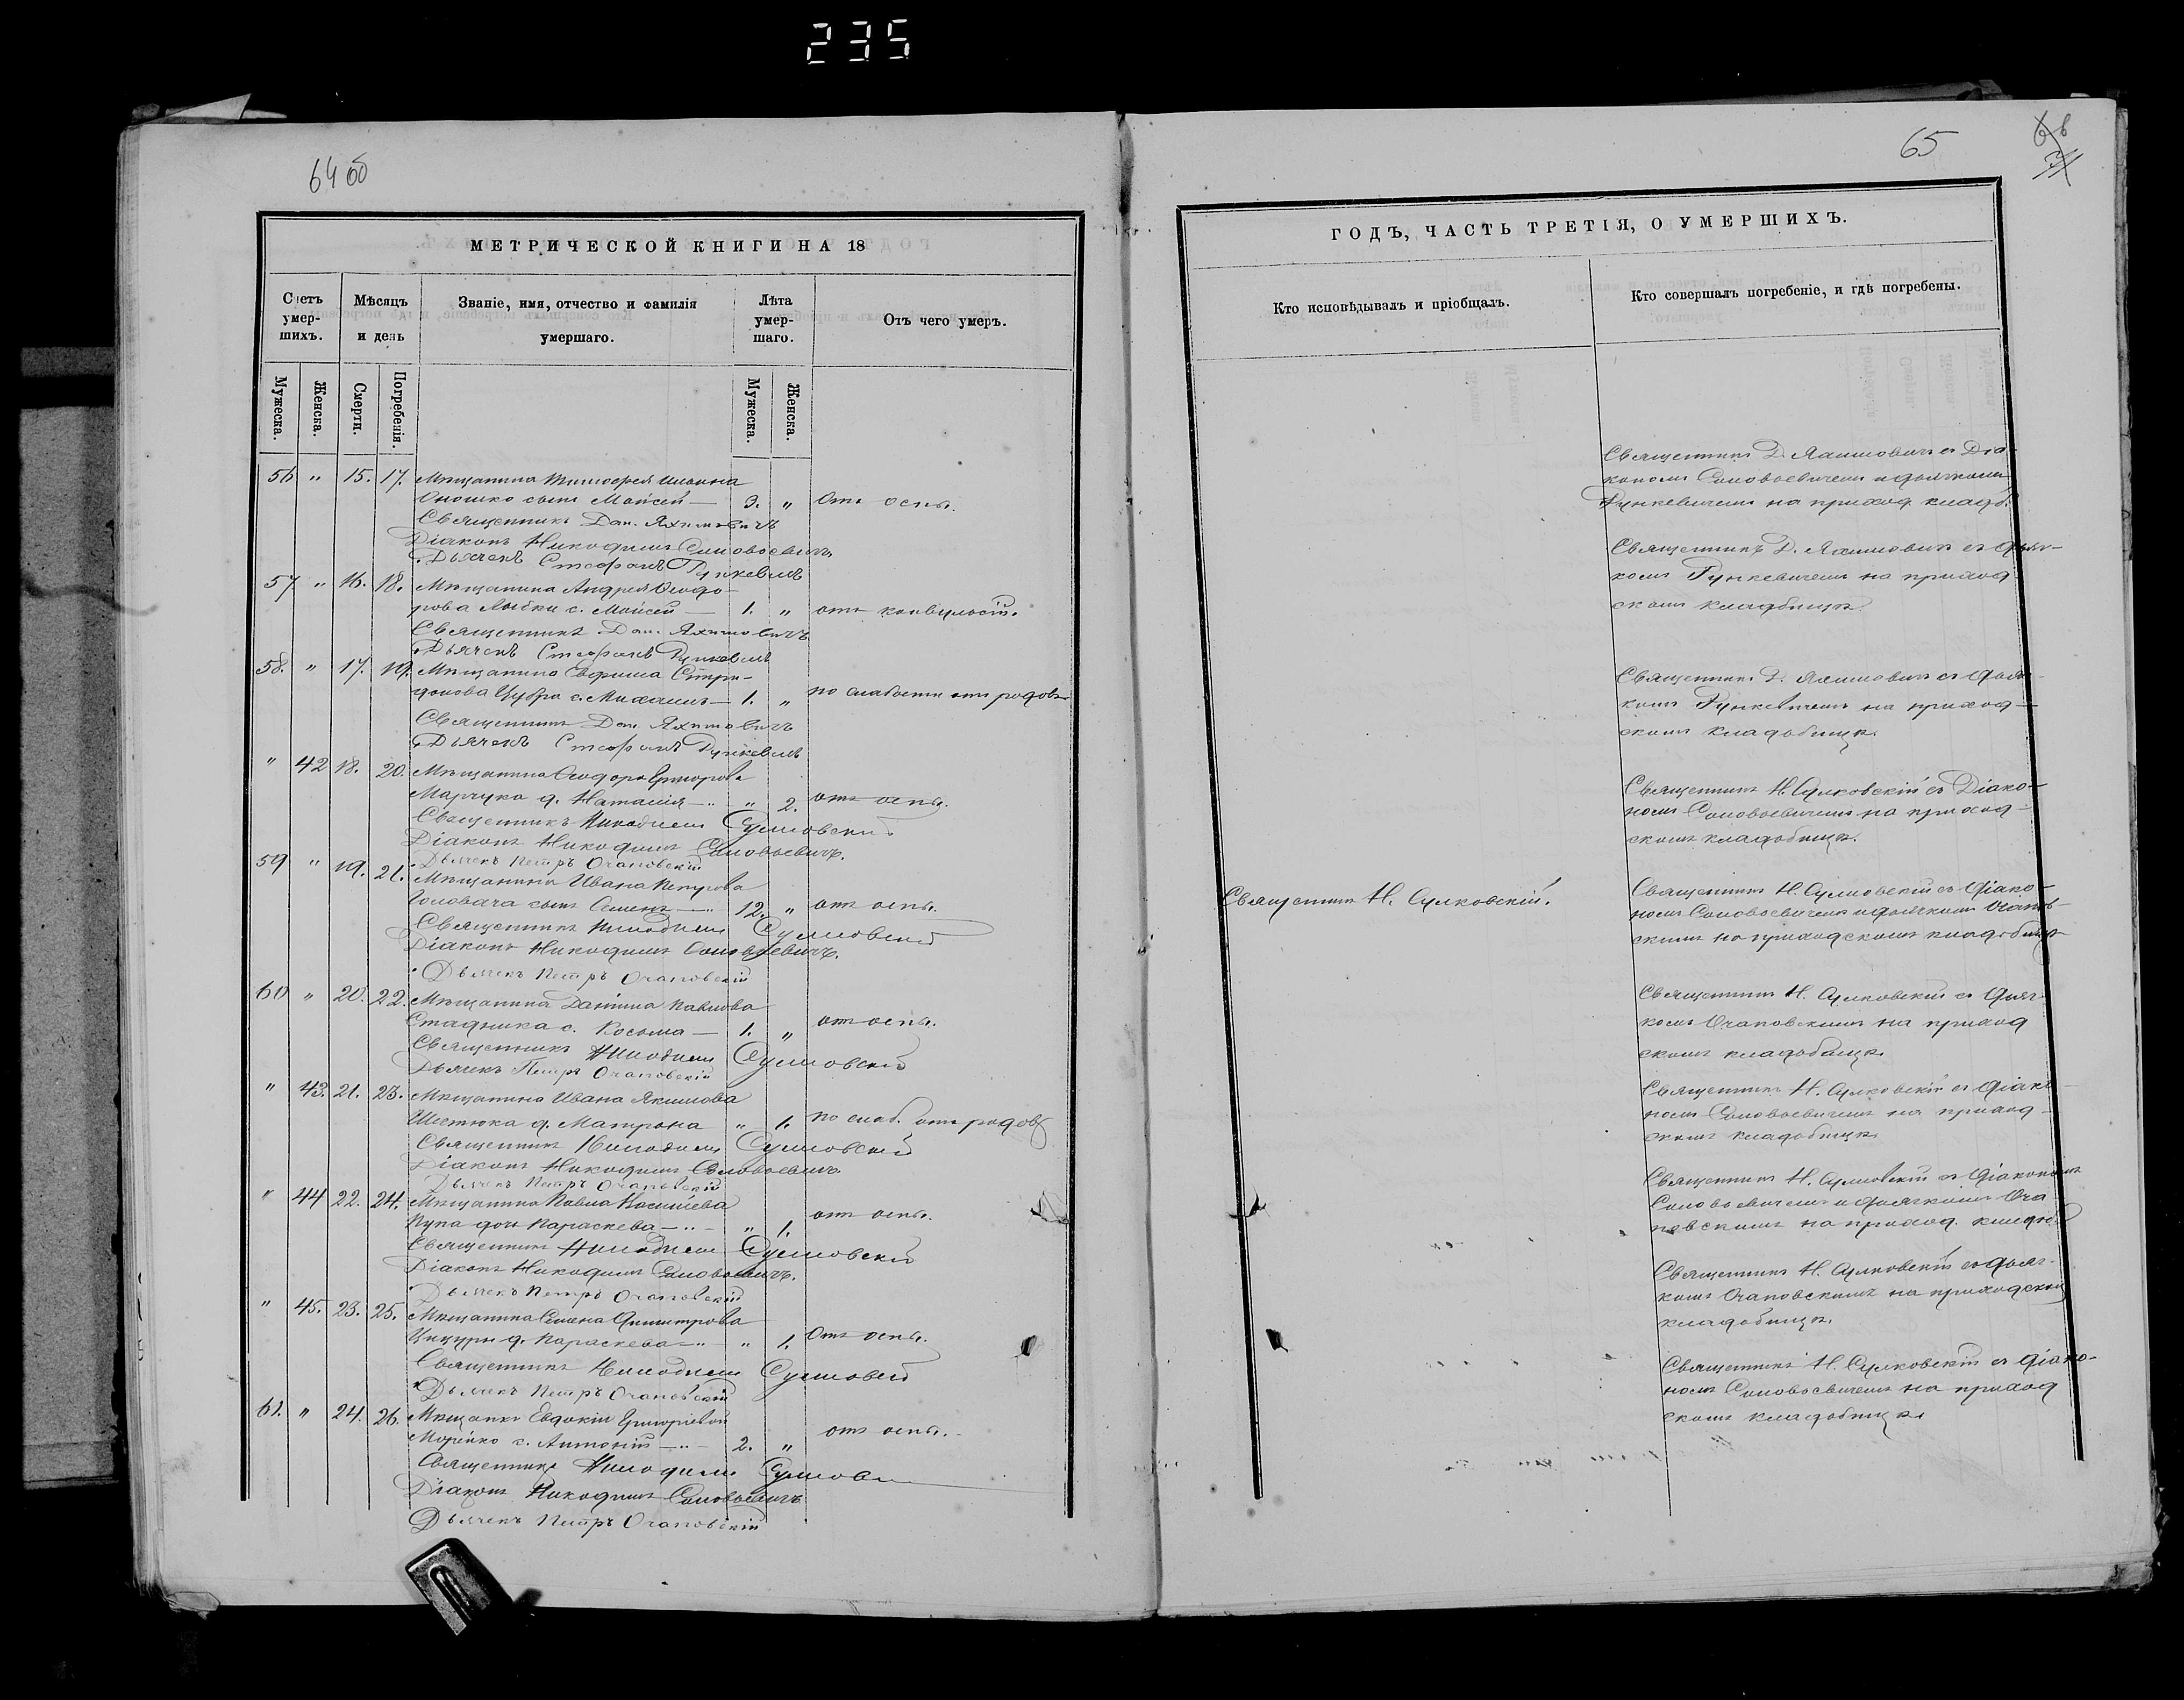 235
64 об
65
МЕТРИЧЕСКОЙ КНИГИ НА 18
Счетъ умершихъ.
Мѣсяцъ и день
Званіе, имя, отчество и фамилія умершаго.
Лѣта умершаго.
Отъ чего умеръ.
Мужеска.
Женска.
Смерти.
Погребенія.
Мужеска.
Женска.
56 " 15. 17. Мѣщанина Тимофея Ильина
Оношко сынъ Моисей — 3. " Отъ оспы.
Священникъ Дан. Яхимовичъ
Діаконъ Никодимъ Соловьевичъ
Дьячекъ Стефанъ Рункевичъ
57 " 16. 18. Мѣщанина Андрея Ѳеодо-
рова с. Моисей — 1. " отъ конвульсій.
Священникъ Дан. Яхимовичъ
Дьячекъ Стефанъ Рункевичъ
58. " 17. 19. Мѣщанина Ефима Спири-
донова Цубра с. Михаилъ — 1. " по слабости отъ родовъ
Священникъ Дан. Яхимовичъ
Дьячекъ Стефанъ Рункевичъ
" 42 18. 20. Мѣщанина Ѳеодора Григорова
Марчука д. Наталія — " 2. отъ оспы.
Священникъ Никодимъ Сулковскій
Діаконъ Никодимъ Соловьевичъ.
Дьячекъ Петръ Очаповскій
59 " 19. 21. Мѣщанина Ивана Петрова
Головача сынъ Семенъ — 12. " отъ оспы.
Священникъ Никодимъ Сулковскій
Діаконъ Никодимъ Соловьевичъ.
Дьячекъ Петръ Очаповскій
60 " 20. 22. Мѣщанина Даніила Павлова
Стадника с. Косьма — 1. " отъ оспы.
Священникъ Никодимъ Сулковскій
Дьячекъ Петръ Очаповскій
" 43. 21. 23. Мѣщанина Ивана Якимова
Шестюка д. Матрона " 1. по слаб. отъ родовъ
Священникъ Никодимъ Сулковскій
Діаконъ Никодимъ Соловьевичъ
Дьячекъ Петръ Очаповскій
" 44 22. 24. Мѣщанина Павла
Купа дочь Параскева — " 1. отъ оспы.
Священникъ Никодимъ Сулковскій
Діаконъ Никодимъ Соловьевичъ.
Дьячекъ Петръ Очаповскій
" 45. 23. 25. Мѣщанина Семена Димитрова
Цицуры д. Параскева — " 1. Отъ оспы.
Священникъ Никодимъ Сулковскій
Дьячекъ Петръ Очаповскій
61. " 24. 26. Мѣщанки Евдокіи Григоріевой
Морейко с. Антоній — 2. " отъ оспы.
Священникъ Никодимъ Сулковскій
Діаконъ Никодимъ Соловьевичъ
Дьячекъ Петръ Очаповскій
ГОДЪ, ЧАСТЬ ТРЕТІЯ, О УМЕРШИХЪ.
Кто исповѣдывалъ и пріобщалъ.
Кто совершалъ погребеніе, и гдѣ погребены.
Священникъ Д. Яхимовичъ съ Діа-
кономъ Соловьевичемъ и дьячкомъ
Рункевичемъ на приход. кладб.
Священникъ Д. Яхимовичъ съ дьяч-
комъ Рункевичемъ на приход
скомъ кладбищѣ
Священникъ Д. Яхимовичъ съ дьяч-
комъ Рункевичемъ на приход-
скомъ кладбищѣ.
Священникъ Н. Сулковскій съ Діако-
номъ Соловьевичемъ на приход-
скомъ кладбищѣ.
Священникъ Н. Сулковскій.
Священникъ Н. Сулковскій съ діако-
номъ Соловьевичемъ и дьячкомъ Очапов-
скимъ на приходскомъ кладбищѣ
Священникъ Н. Сулковскій съ дьяч-
комъ Очаповскимъ на приход
скомъ кладбищѣ.
Священникъ Н. Сулковскій съ діако-
номъ Соловьевичемъ на приход-
скомъ кладбищѣ
Священникъ Н. Сулковскій съ діакономъ
Соловьевичемъ и дьячкомъ Оча
повскимъ на приход. кладб.
Священникъ Н. Сулковскій съ дьяч-
комъ Очаповскимъ на приходскомъ
кладбищѣ.
Священникъ Н. Сулковскій съ діако-
номъ Соловьевичемъ на приход
скомъ кладбищѣ.